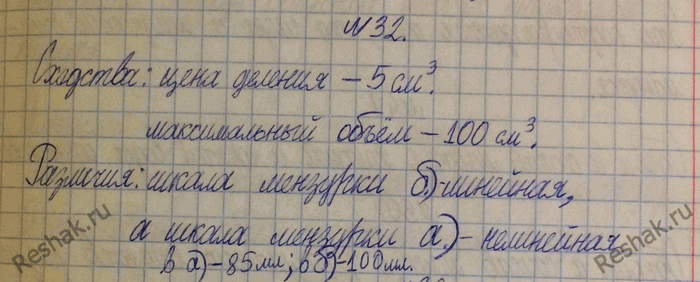 №32.
Сходства: цена деления – 5 см³.
максимальный объём – 100 см³.
Различия: шкала мензурки б)-линейная,
а шкала мензурки а)-нелинейная
в а)-85мл; в б)-100мл.
Reshak.ru
Reshak.ru